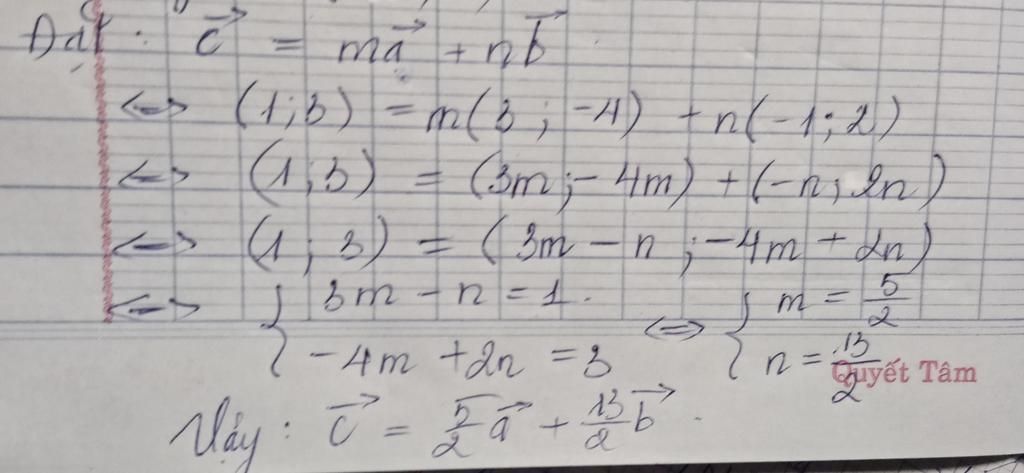 Đặt : c⃗ = ma⃗ + nb⃗
<=> (1;3) = m(3 ; -4) + n(-1; 2)
<=> (1 ; 3) = (3m ; - 4m) + (-n ; 2n)
<=> (1 ; 3) = (3m - n ; -4m + 2n)
<=> { 3m - n = 1 . <=> { m = 5/2
-4m + 2n = 3 n = 13/2
Quyết Tâm
Vậy : c⃗ = 5/2 a⃗ + 13/2 b⃗ .